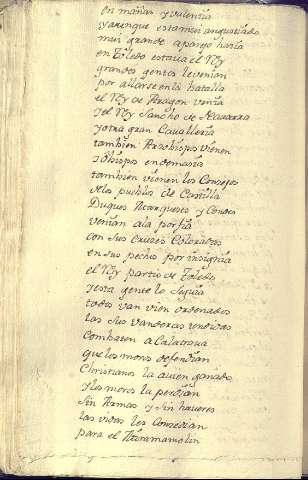 en mañas y valentia
y aunque esta mui angustiado
mui grande aparejo hacia
en Toledo estaria el Rey
grandes gentes le venian
por allarse en la batalla
el Rey de Aragon venia
y el Rey Sancho de Navarra
y otra gran Cavalleria
tambien Arzobispos vienen
y obispos en demasia
tambien vienen los Consejos
de los pueblos de Castilla
Duques Marqueses y Condes
venian a la porfia
con sus Cruzes Coloradas
en sus pechos por insignia
el Rey partio de Toledo
y esta gente le seguia
todos van vien ordenados
las sus vanderas tendidas
Combaten a Calatrava
que los moros defendian
Christianos la avien ganado
y los moros la perdian
sin Armas y sin haveres
las vidas les Consedian
para el Miramamolin